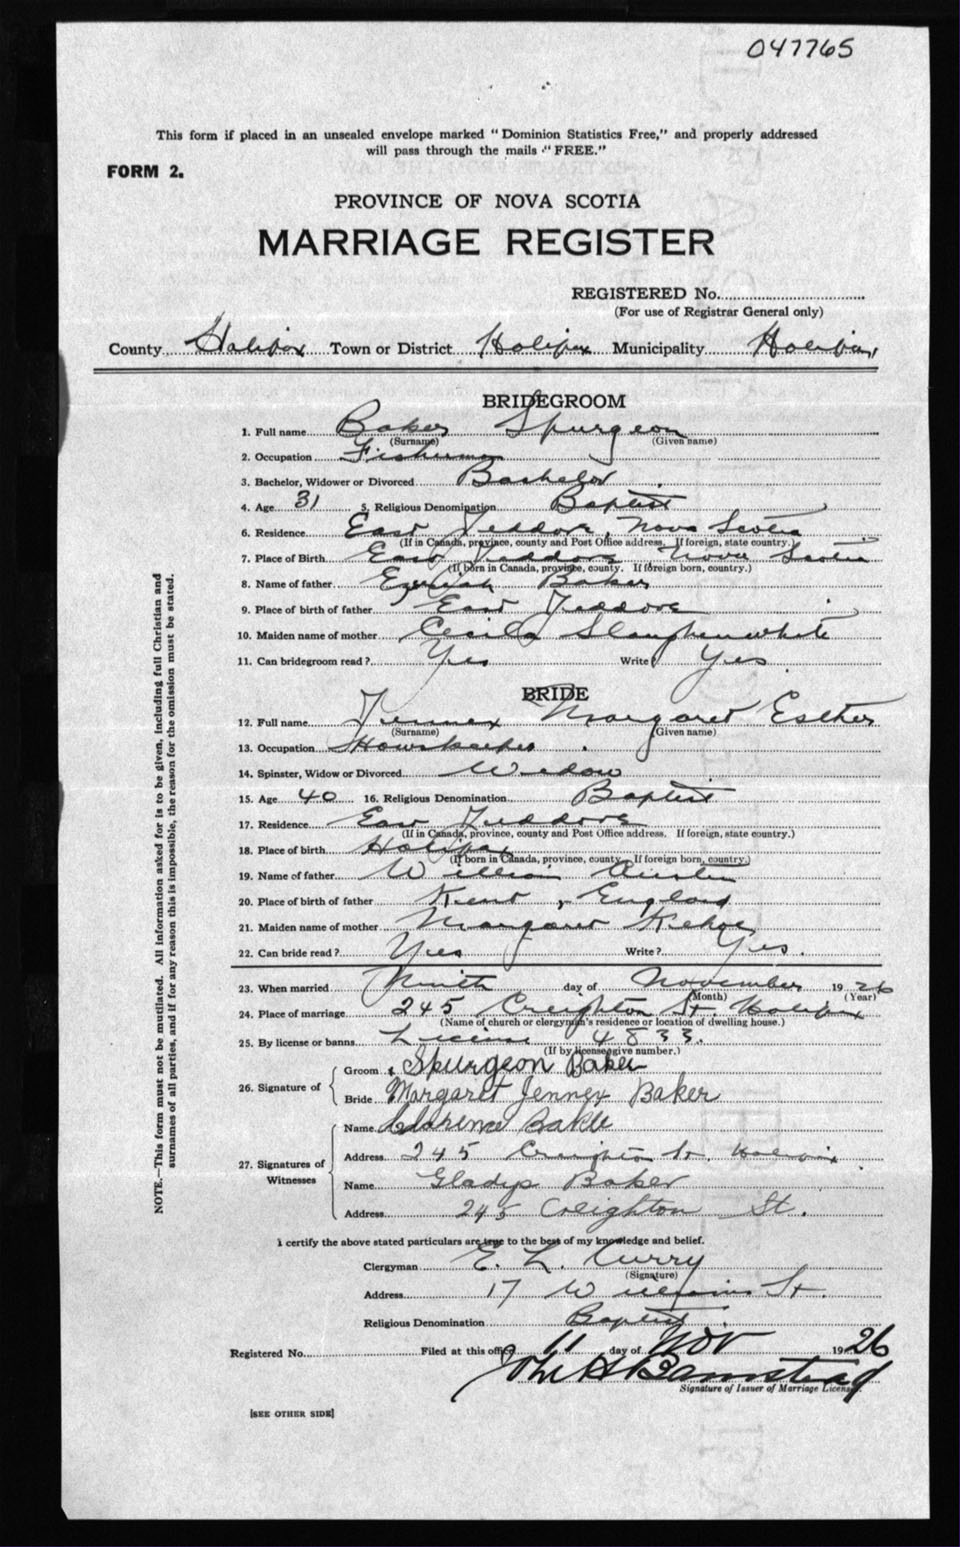 047765
This form if placed in an unsealed envelope marked "Dominion Statistics Free," and properly addressed
will pass through the mails "FREE."
FORM 2.
PROVINCE OF NOVA SCOTIA
MARRIAGE REGISTER
REGISTERED No.
(For use of Registrar General only)
County Halifax Town or District Halifax Municipality Halifax
BRIDEGROOM
1. Full name Baker Spurgeon
(Surname) (Given name)
2. Occupation Fisherman
3. Bachelor, Widower or Divorced Bachelor
4. Age 31 5. Religious Denomination Baptist
6. Residence East Jeddore, Nova Scotia
(If in Canada, province, county and Post Office address. If foreign, state country.)
7. Place of Birth East Jeddore Nova Scotia
(If born in Canada, province, county. If foreign born, country.)
8. Name of father Baker
9. Place of birth of father East Jeddore
10. Maiden name of mother Slaughenwhite
11. Can bridegroom read? Yes Write? Yes.
BRIDE
12. Full name Jennex Margaret Esther
(Surname) (Given name)
13. Occupation Howskeeper
14. Spinster, Widow or Divorced Widow
15. Age 40 16. Religious Denomination Baptist
17. Residence East Jeddore
(If in Canada, province, county and Post Office address. If foreign, state country.)
18. Place of birth Halifax
(If born in Canada, province, county. If foreign born, country.)
19. Name of father William Austin
20. Place of birth of father Kent, England
21. Maiden name of mother Margaret Kehoe
22. Can bride read? Yes Write? Yes.
23. When married Ninth day of November 1926
(Month) (Year)
24. Place of marriage 245 Creighton St. Halifax
(Name of church or clergyman's residence or location of dwelling house.)
25. By license or banns License 4833.
(If by license give number.)
26. Signature of
Groom Spurgeon Baker
Bride Margaret Jennex Baker
27. Signatures of Witnesses
Name Clarence Baker
Address 245 Creighton St. Halifax
Name Gladys Baker
Address 245 Creighton St.
I certify the above stated particulars are true to the best of my knowledge and belief.
Clergyman E. L. Curry
(Signature)
Address 17 Williams St.
Religious Denomination Baptist
Registered No. Filed at this office 11 day of Nov 1926
Signature of Issuer of Marriage License.
[SEE OTHER SIDE]
NOTE.—This form must not be mutilated. All information asked for is to be given, including full Christian and
surnames of all parties, and if for any reason this is impossible, the reason for the omission must be stated.